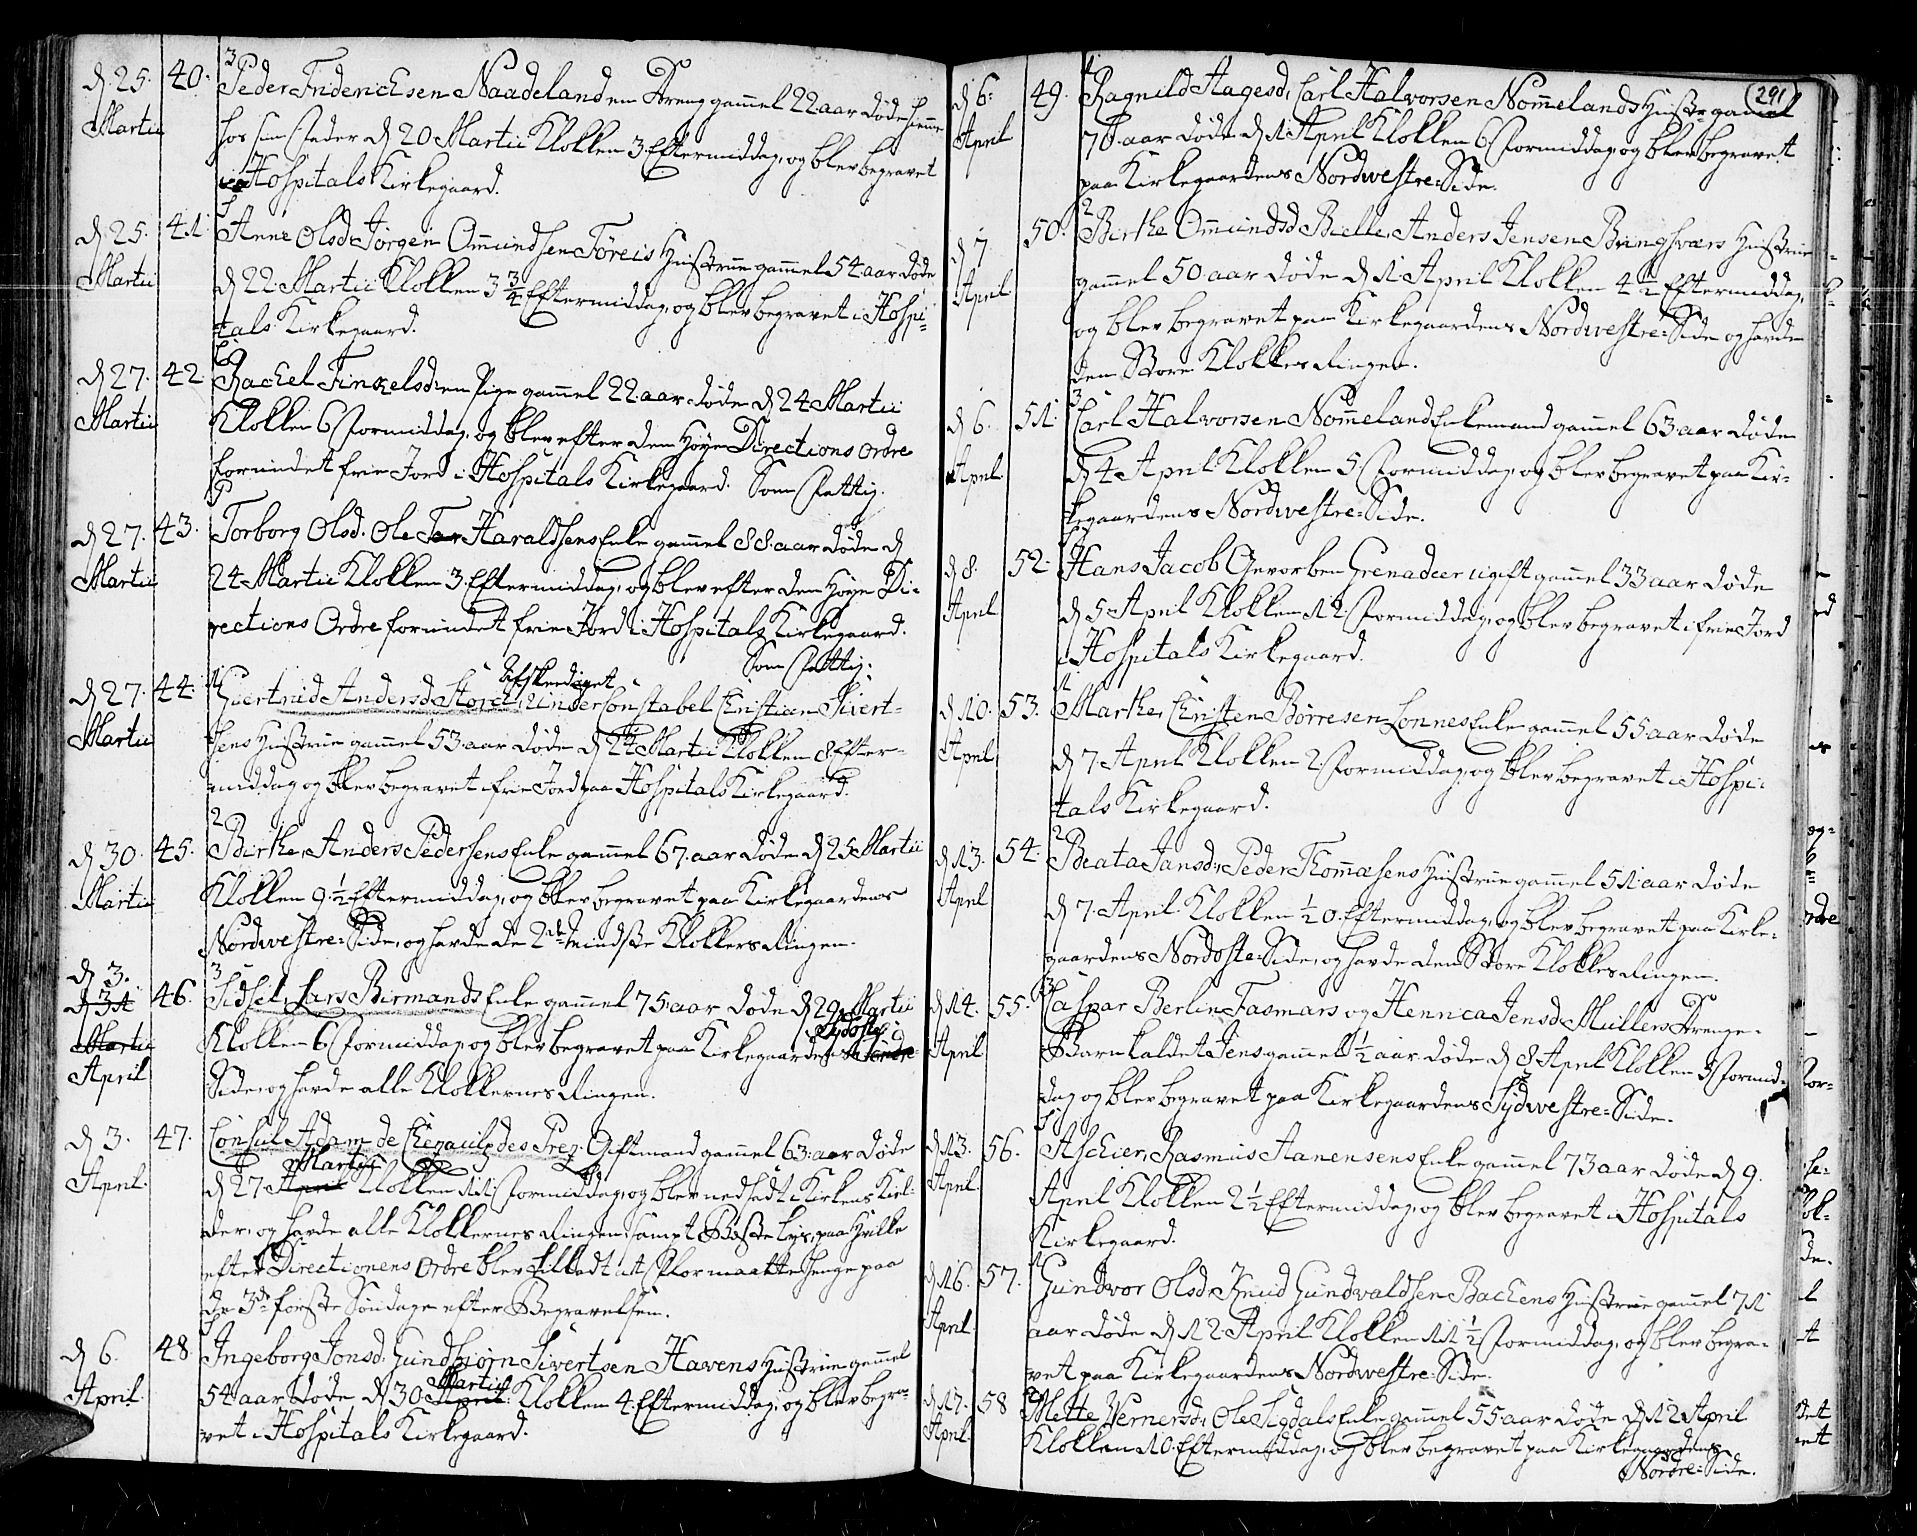 d 25. Martii 40. 3 Peder Friderichsen Naadeland en Dreng gamel 22 aar døde hiemme
hos sin Fader d 20 Martii Klokken 3. Eftermiddag, og blev begravet
i Hospitals Kirkegaard.
d 25. Martii 41. Anne Olsd. Jørgen Omundsen Føreis Hustrue gamel 54 aar døde
d 22 Martii Klokken 3 3/4 Eftermiddag, og blev begravet i Hospi-
tals Kirkegaard.
d 27. Martii 42. Rachel Finkelsd. en Pige gamel 22 aar døde d 24 Martii
Klokken 6 Formiddag, og blev efter den Høye Directions Ordre
forundet frie Jord i Hospitals Kirkegaard. Som Fattig.
d 27. Martii 43. Torborg Olsd. Ole Haraldsens Enke gamel 88 aar døde d
24 Martii Klokken 3. Eftermiddag, og blev efter den Høye Di-
rections Ordre forundet frie Jord i Hospitals Kirkegaard.
Som Fattig.
Afskeediget
d 27. Martii 44. 1 Giertruid Andersd. Stord, Under Constabel Christian Sivert-
sens Hustrue gamel 53 aar døde d 24 Martii Klokken 8 Efter-
middag og blev begravet i frie Jord paa Hospitals Kirkegaard.
d 30. Martii 45. 2 Birthe, Anders Pedersens Enke gamel 67. aar døde d 25 Martii
Klokken 9 1/2 Eftermiddag, og blev begravet paa Kirkegaardens
Nordwestre-Side, og havde de 2de Mindste Klokkers Ringen.
d 3. d 31 Martii April 46. 3 Sidsel, Lars Birmands Enke gamel 75 aar døde d 29 Martii
Klokken 6 Formiddag, og blev begravet paa Kirkegaardens Sydoste
Side, og havde alle Klokkernes Ringen.
d 3. April. 47. Consul Adam de Giftmand gamel 63. aar døde
d 27 April Martii Klokken 11 Formiddag, og blev nedsadt i Kirkens Kiel-
der, og havde alle Klokkernes Ringen, sampt Beste Lys, paa hvilke
efter Directionens Ordre blev tilladt at Flor maatte henge paa
de 3de første Søndage efter Begravelsen.
d 6. April. 48 Ingeborg Jonsd. Gundbiørn Sivertsen Havens Hustrue gamel
54 aar døde d 30 April Martii Klokken 4. Eftermiddag, og blev begra-
vet i Hospitals Kirkegaard.
291
d 6. April 49. 1 Ragnild Aagesd. Carl Halvorsen Nomelands Hustr. gamel
70. aar døde d 1. April Klokken 6 Formiddag, og blev begravet
paa Kirkegaardens Nordwestre-Side.
d 7. April 50. 2 Birthe Omundsd. Bielle, Anders Jensen Bringsværs Hustrue
gamel 50. aar døde d 1. April Klokken 4 1/2 Eftermiddag,
og blev begravet paa Kirkegaardens Nordwestre-Side og havde
den Store Klokkes Ringen.
d 6. April 51. 3 Carl Halvorsen Nomeland Enkemand gamel 63 aar døde
d 4 April Klokken 5 Formiddag, og blev begravet paa Kir-
kegaardens Nordwestre-Side.
d 8. April 52. Hans Jacob Gevorben Grenadeer ugift gamel 33 aar døde
d 5 April Klokken 12 Formiddag, og blev begravet i frie Jord
i Hospitals Kirkegaard.
d 10. April 53. 1 Marthe, Christen Børresen Lonnes Enke gamel 55 aar døde
d 7 April Klokken 2. Formiddag, og blev begravet i Hospi-
tals Kirkegaard.
d 13. April 54. 2 Beata Jansd. Peder Thomæsens Hustrue gamel 51 aar døde
d 7. April Klokken 1/2 0. Eftermiddag, og blev begravet paa Kirke-
gaardens Nordoste-Side, og havde den Store Klokkes Ringen.
d 14. April 55. 3 Caspar Berlin Fasmars og Henrica Jensd. Mullers Drenge-
Barn kaldet Jens gamel 1/2 aar døde d 8 April Klokken 5 Formid-
dag og blev begravet paa Kirkegaardens Sydwestre-Side.
d 13. April 56. Aschier, Rasmus Aanensens Enke gamel 73 aar døde d 9.
April Klokken 2 1/2 Eftermiddag, og blev begravet i Hospitals
Kirkegaard.
d 16. April 57. 1 Gundvor Olsd. Knud Gundvaldsen Bachens Hustrue gamel 71
aar døde d 12 April Klokken 11 1/2 Formiddag, og blev begra-
vet paa Kirkegaardens Nordwestre-Side.
d 17. April 58 Mette Wernersd. Ole Sigdals Enke gamel 55 aar døde d 12 April
Klokken 10. Eftermiddag, og blev begravet paa Kirkegaardens
Nordre-Side.